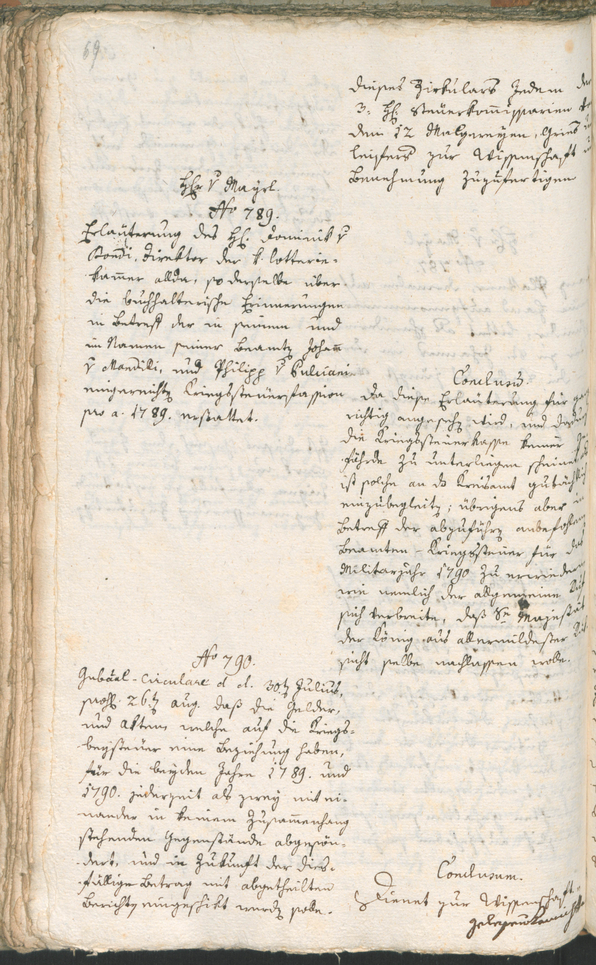 69
dieses Zirkulars jedem der
3. H. Steuerkommissarien
dem 12 Malgreyen, Gries
leifers zur Wissenschaft
Benehmung zuzufertigen
H. v Mayrl.
No 789.
Erläuterung des H. Dominik v
Direktor der k. Lotterie-
kammer allda, so derselbe über
die buchhalterische Erinnerungen
in Betreff der in seinem und
im Namen seiner Beamten Johann
v Mandili, und Philipp v Pulciani
eingereichten Kriegssteuerfassion
pro a. 1789. erstattet.
Conclusum.
Da diese Erläuterung für
richtig angesehen wird, und
die Kriegssteuerkasse keiner
fährde zu unterliegen scheinet
ist solche an das Kreisamt gutächtlich
einzubegleiten; übrigens aber in
Betreff der abzuführen anbefohlenen
Beamten-Kriegssteuer für das
Militarjahr 1790 zu erwiedern
wie nemlich der allgemeine Ruf
sich verbreite, daß Se Majestät
der König aus allermildester
sicht selbe nachlassen wolle.
No 790.
Gubĕal-Circulare d. d. 30ten Julius,
26ten Aug. daß die Gelder,
und Akten, welche auf die Kriegs-
beysteuer eine Beziehung haben,
für die beyden Jahre 1789. und
1790. jederzeit als zwey mit ei-
nander in keinem Zusammenhang
stehenden Gegenstände abgesön-
dert, und in Zukunft der dies-
fällige Betrag mit abgetheilten
Berichten eingeschikt werden solle.
Conclusum.
Dienet zur Wissenschaft